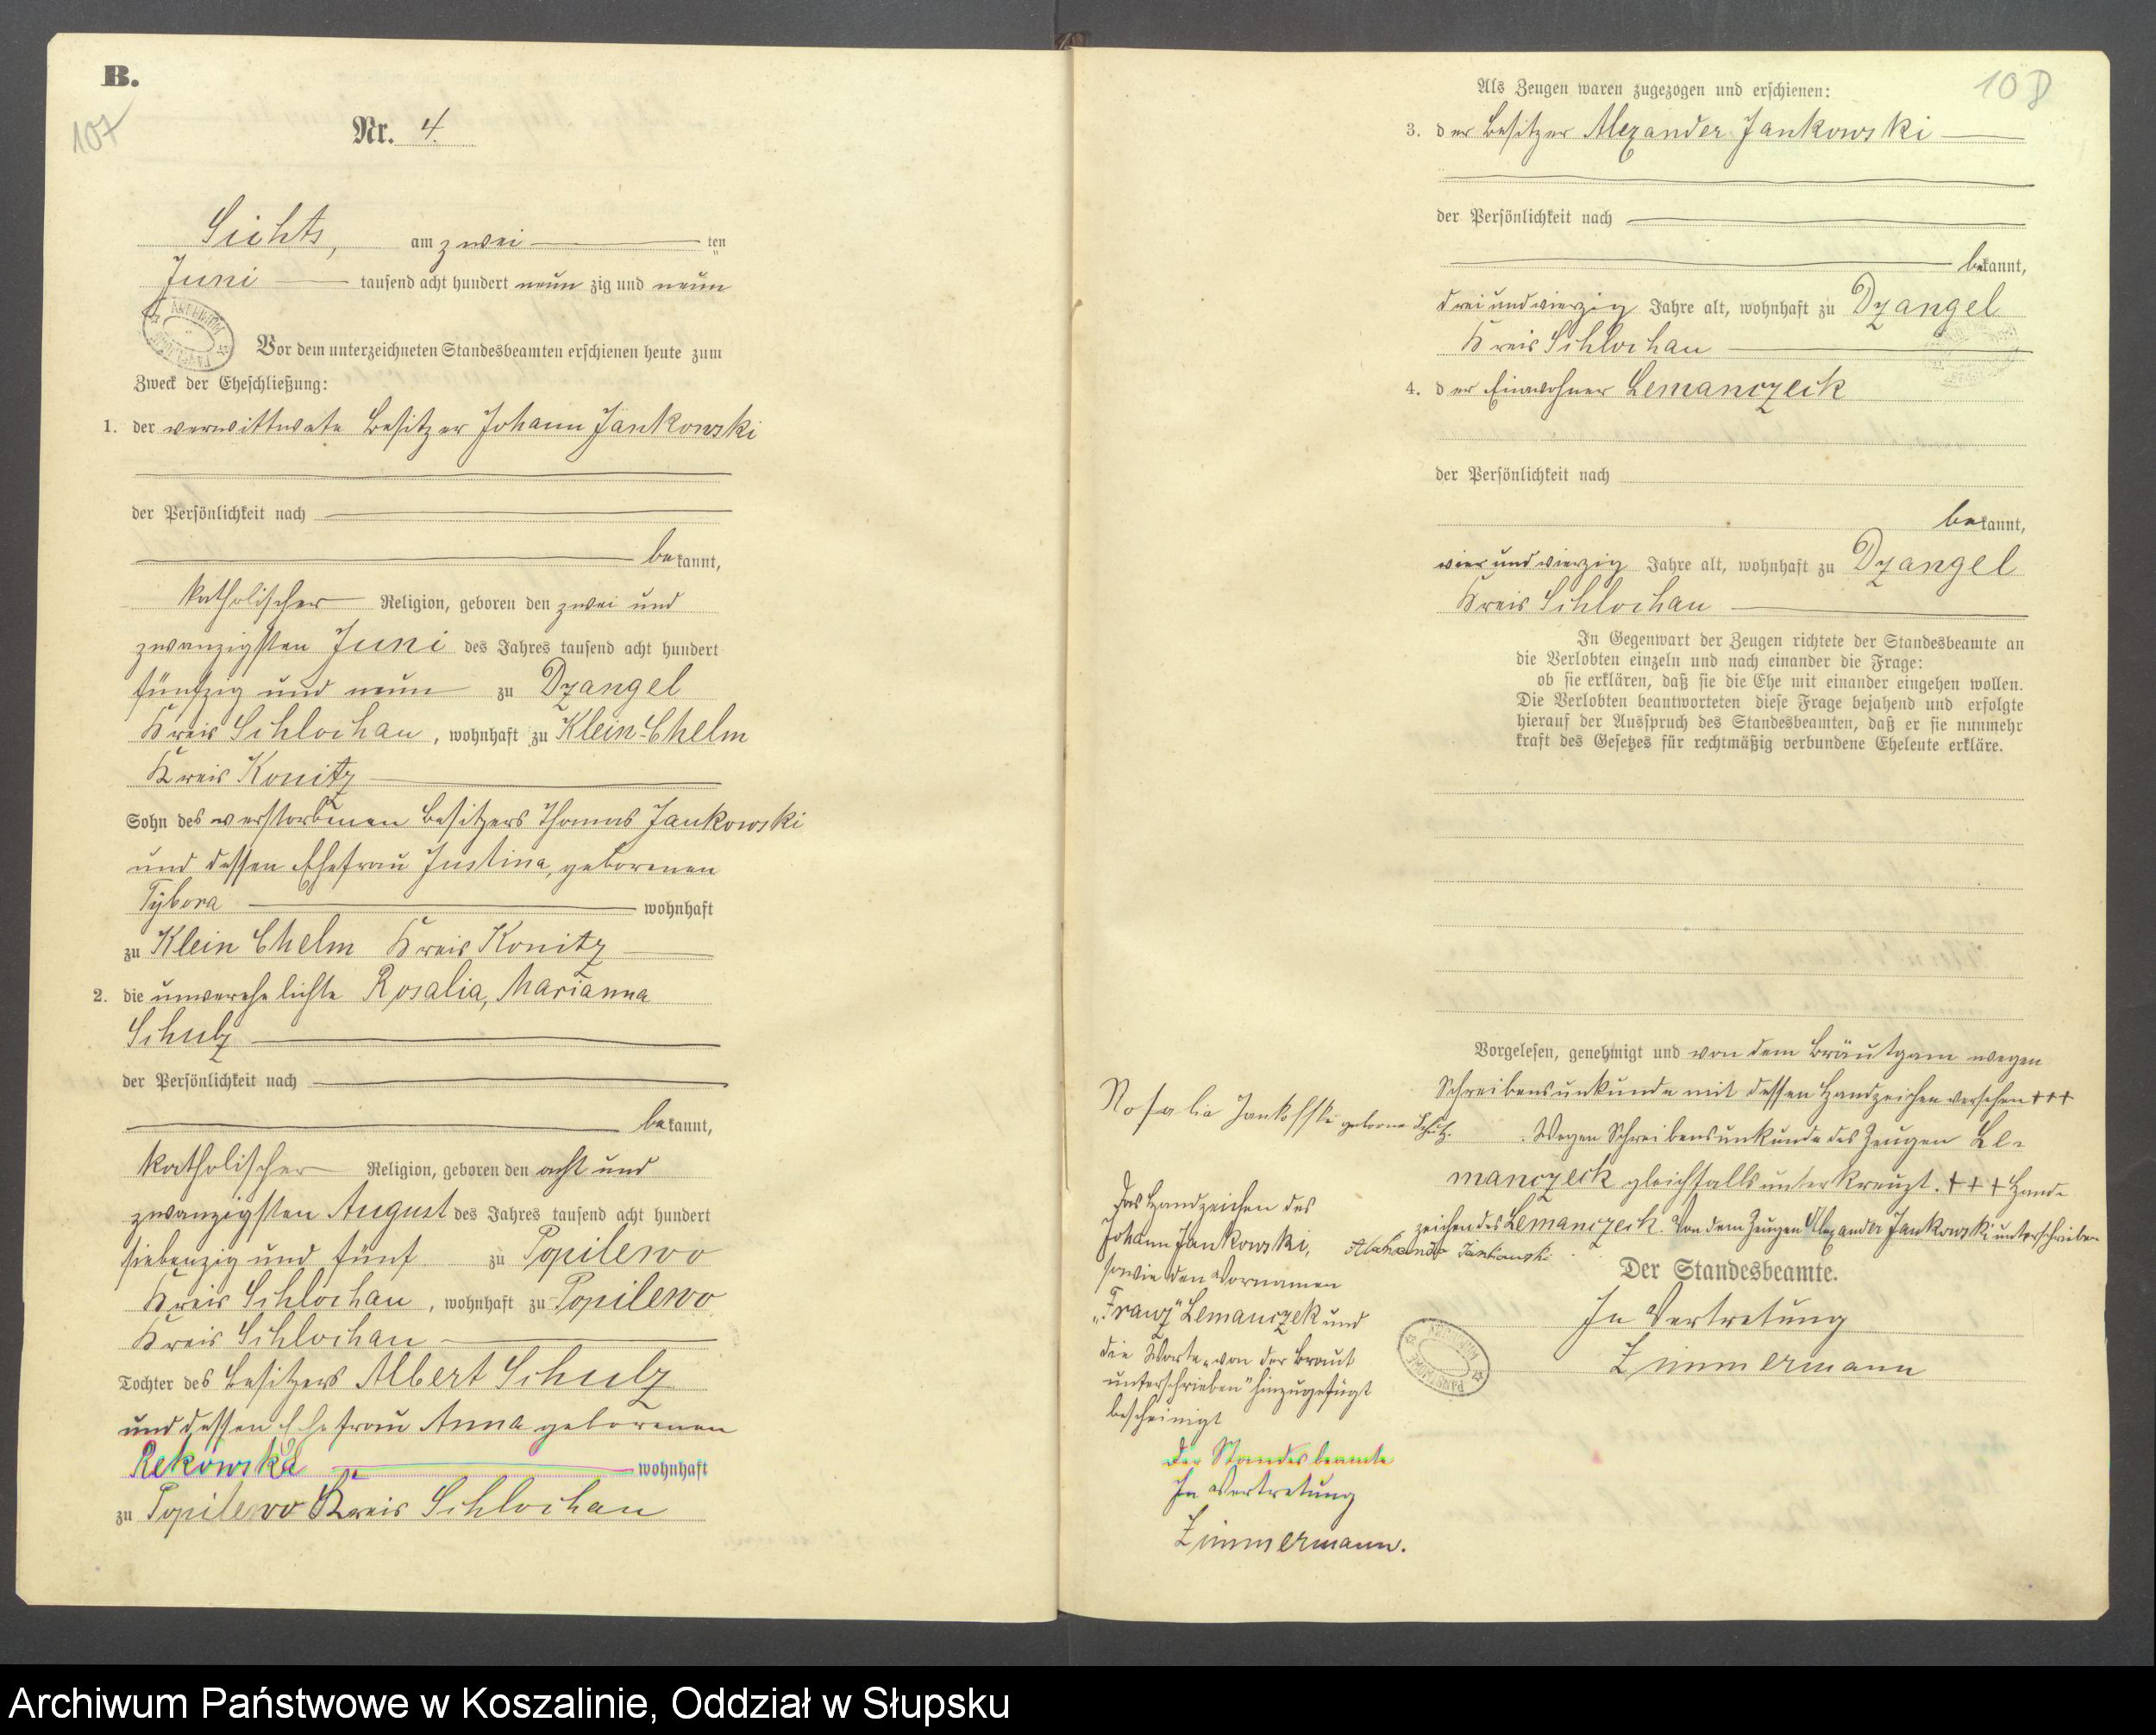 B.
107
Nr. 4.
Sichts, am zwei ten
Juni tausend acht hundert neun zig und neun
Vor dem unterzeichneten Standesbeamten erschienen heute zum
Zweck der Eheschließung:
1. der verwittwete Besitzer Johann Jankowski
der Persönlichkeit nach
bekannt,
katholischer Religion, geboren den zwei und
zwanzigsten Juni des Jahres tausend acht hundert
fünfzig und neun zu Dzangel
Kreis Schlochau, wohnhaft zu Klein-Chelm
Kreis Konitz
Sohn des verstorbenen Besitzers Thomas Jankowski
und dessen Ehefrau Justina, geborenen
Tybora wohnhaft
zu Klein Chelm Kreis Konitz
2. die unverehelichte Rosalia, Marianna
Schulz
der Persönlichkeit nach
bekannt,
katholischer Religion, geboren den acht und
zwanzigsten August des Jahres tausend acht hundert
siebenzig und fünf zu Popilewo
Kreis Schlochau, wohnhaft zu Popilewo
Kreis Schlochau
Tochter des Besitzers Albert Schulz
und dessen Ehefrau Anna geborenen
Rekowska wohnhaft
zu Popilewo Kreis Schlochau
108
Als Zeugen waren zugezogen und erschienen:
3. der Besitzer Alexander Jankowski
der Persönlichkeit nach
bekannt,
drei und vierzig Jahre alt, wohnhaft zu Dzangel
Kreis Schlochau
4. der Einwohner Lemanczeck
der Persönlichkeit nach
bekannt,
vier und vierzig Jahre alt, wohnhaft zu Dzangel
Kreis Schlochau
In Gegenwart der Zeugen richtete der Standesbeamte an
die Verlobten einzeln und nach einander die Frage:
ob sie erklären, daß sie die Ehe mit einander eingehen wollen.
Die Verlobten beantworteten diese Frage bejahend und erfolgte
hierauf der Ausspruch des Standesbeamten, daß er sie nunmehr
kraft des Gesetzes für rechtmäßig verbundene Eheleute erkläre.
Vorgelesen, genehmigt und von dem Bräutgam wegen
Schreibensunkunde mit dessen Handzeichen versehen +++
Rosalia Jankofski geborne Schulz.
Wegen Schreibensunkunde des Zeugen Le-
manczeck gleichfalls unterkreuzt. +++ Hand-
zeichen des Lemanczeck. Von dem Zeugen Alexander Jankowski unterschrieben
Alexander Jankowski
Der Standesbeamte.
In Vertretung
Zimmermann
Das Handzeichen des
Johann Jankowski,
sowie den Vornamen
„Franz" Lemanczek und
die Worte „von der Braut
unterschrieben" hinzugefügt
bescheinigt
Der Standesbeamte
In Vertretung
Zimmermann.
Archiwum Państwowe w Koszalinie, Oddział w Słupsku